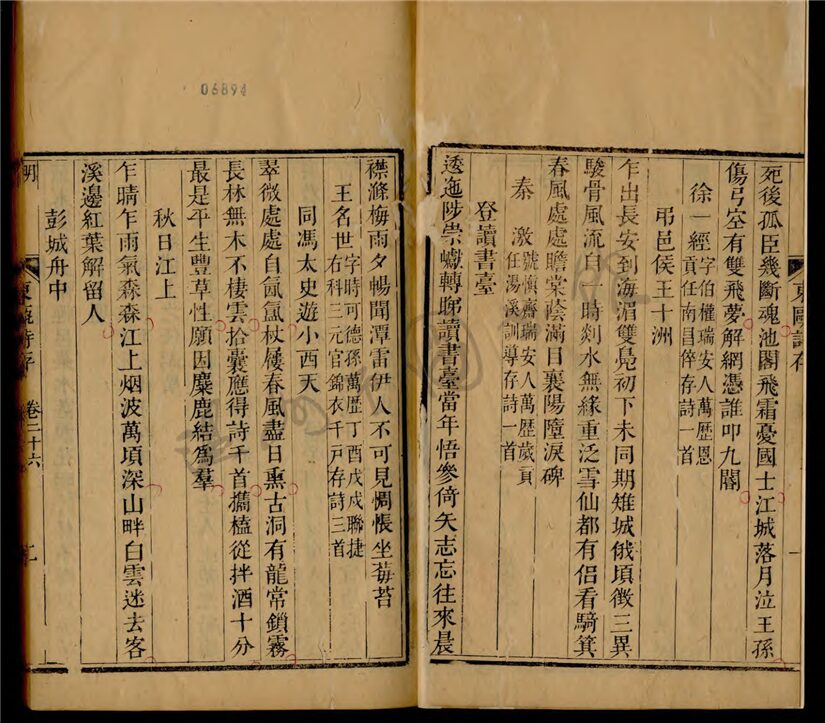 06894
東甌詩存
死後孤臣幾斷魂池閣飛霜憂國士江城落月泣王孫
傷弓空有雙飛夢解網憑誰叩九閽
徐一經字伯權瑞安人萬歷恩
貢任南昌倅存詩一首
弔邑侯王十洲
乍出長安到海湄雙鳧初下未同期雉城俄頃徵三異
駿骨風流自一時剡水無緣重泛雪仙都有侶看騎箕
春風處處瞻棠蔭滿目襄陽墮淚碑
秦激號慎齋瑞安人萬歷歲貢
任湯溪訓導存詩一首
登讀書臺
透迤陟崇巘轉睇讀書臺當年悟參倚矢志忘往來晨
襟滌梅雨夕暢聞潭雷伊人不可見惆悵坐莓苔
王名世字時可德孫萬歷丁酉戊戌聯捷
右科三元官錦衣千戸存詩三首
同馮太史遊小西天
翠微處處自氤氳杖屨春風盡日熏古洞有龍常鎖霧
長林無木不棲雲拾囊應得詩千首攜榼從拌酒十分
最是平生豐草性願因麋鹿結爲羣
秋日江上
乍晴乍雨氣森森江上烟波萬頃深山畔白雲迷去客
溪邊紅葉解留人
彭城舟中
明
東甌詩存
卷二十六
二